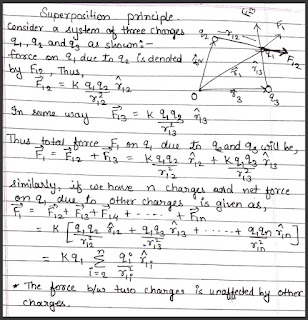 Superposition principle.
Consider a system of three charges
q₁, q₂ and q₃ as shown:-
force on q₁ due to q₂ is denoted
by F₁₂, Thus,
F⃗₁₂ = K q₁q₂ r̂₁₂
r²₁₂
In same way F⃗₁₃ = K q₁q₃ r̂₁₃
r²₁₃
Thus total force F₁ on q₁ due to q₂ and q₃ will be,
F⃗₁ = F⃗₁₂ + F⃗₁₃ = K q₁q₂ r̂₁₂ + K q₁q₃ r̂₁₃
r²₁₂ r²₁₃
similarly, if we have n charges and net force
on q₁ due to other charges is given as,
F⃗₁ = F⃗₁₂ + F⃗₁₃ + F⃗₁₄ + ------ + F⃗₁ₙ
= K [ q₁q₂ r̂₁₂ + q₁q₃ r̂₁₃ + ------ + q₁qₙ r̂₁ₙ ]
r²₁₂ r²₁₃ r²₁ₙ
= K q₁ n Σ i=2 qᵢ r̂₁ᵢ
r²₁ᵢ
* The force b/w two charges is unaffected by other
charges.
q₂
r₁₂
F₁
q₁
F₁₂
r⃗₁
r⃗₁₃
O
r⃗₃
q₃